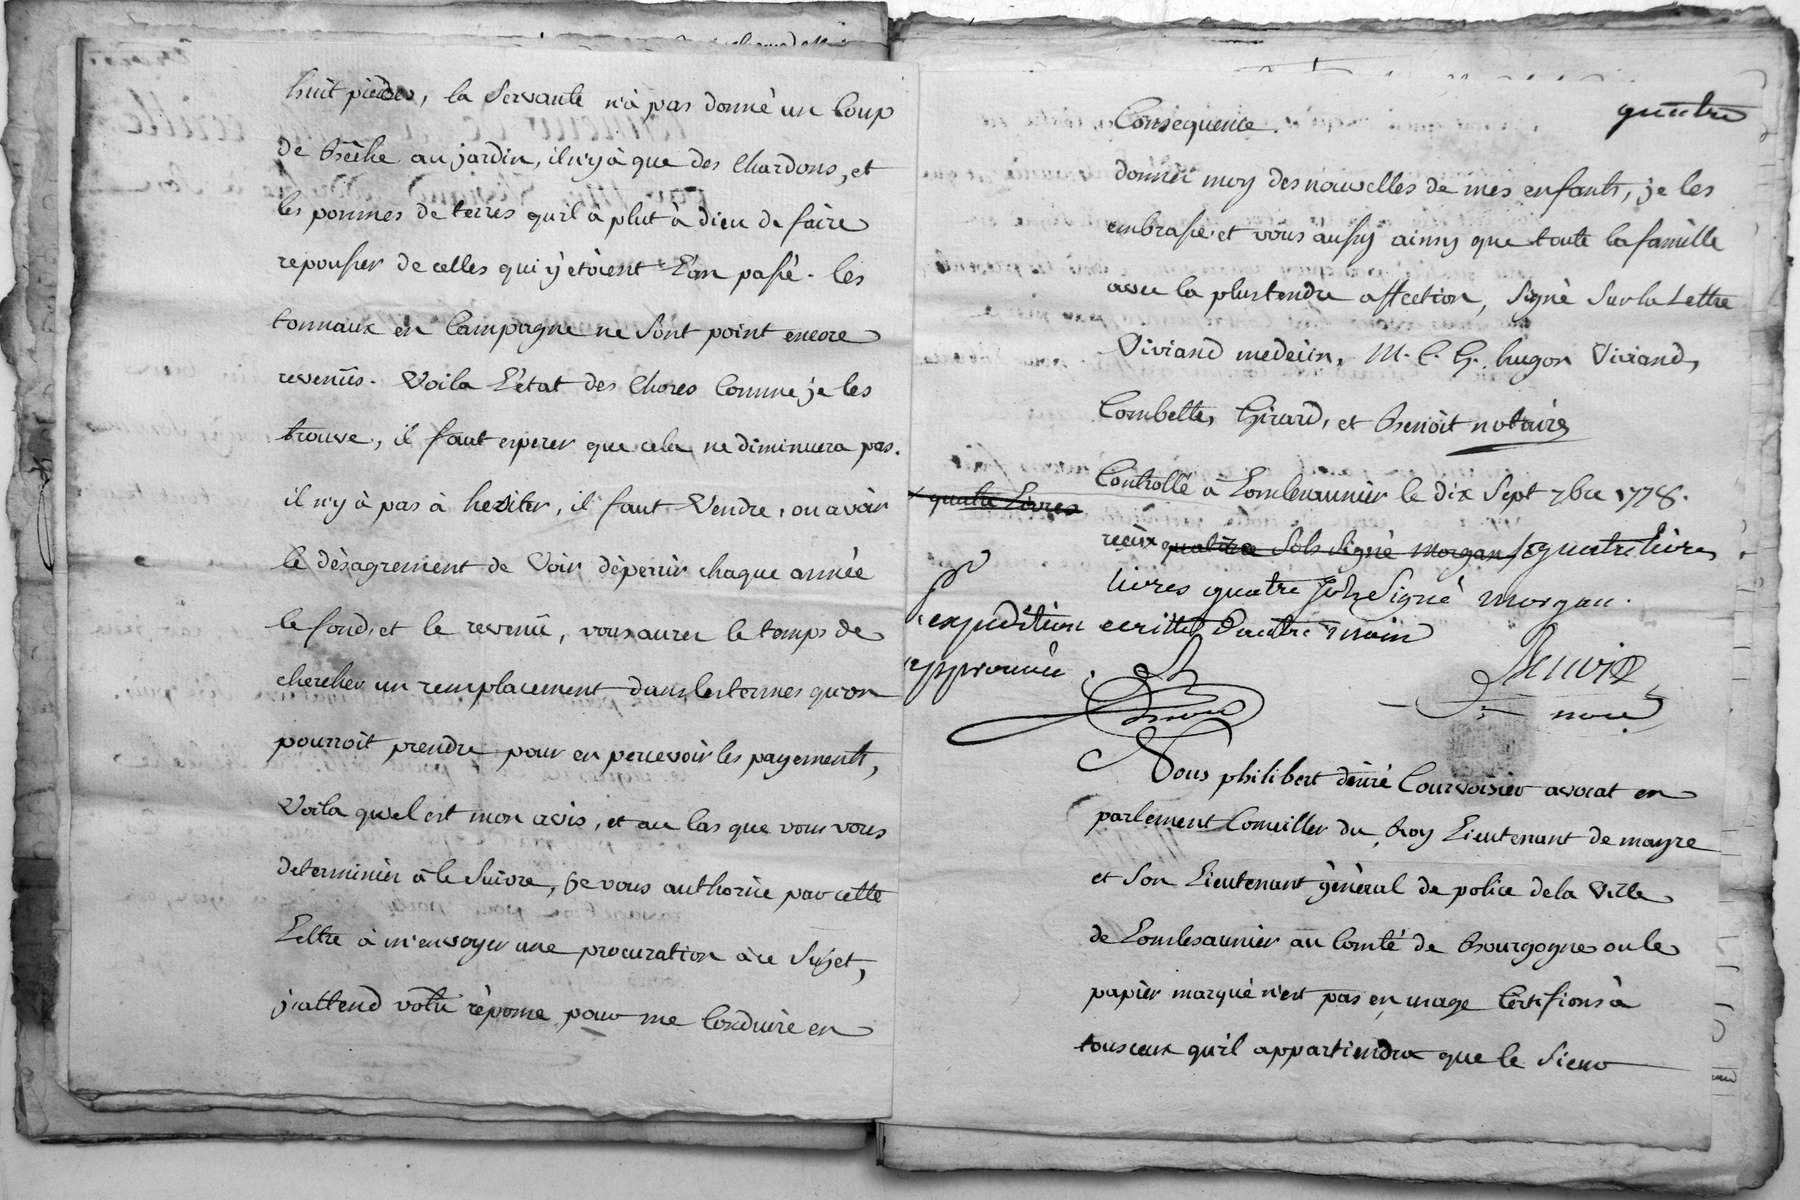 huit pieds, la Servante n'à pas donné un Coup
de Bêche au jardin, il n'y à que des Chardons, et
les pommes de terres qu'il à plut à dieu de faire
repousser de celles qui y etoient l'an passé. les
tonnaux en Campagne ne Sont point encore
revenûs. Voila L'état des Choses Comme je les
trouve, il faut esperer que cela ne diminuera pas.
il n'y à pas à heziter, il faut Vendre, ou avoir
le désagrement de Voir déperir chaque année
le fond, et le revenû, vous aurez le temps de
chercher un remplacement dans les termes qu'on
pourroit prendre pour en percevoir les payements,
Voila quel est mon avis, et au Cas que vous vous
determinier à le Suivre, je vous authorise par cette
Lettre à m'envoyer une procuration à ce Sujet,
j'attend votre réponse pour me Conduire en
quatre
Consequence.
donner moy des nouvelles de mes enfants, je les
embrasse et vous aussy ainsy que toute la famille
avec la plus tendre affection, Signé Sur la Lettre
Viviand medecin, M. C. G. hugon Viviand,
Combette, Girard, et Benoit notaire
Controllé à Lonlesaunier le dix Sept 7bre 1778.
quatre Livres
recu quatre Sols Signé Morgan quatre livres
livres quatre Sols Signé Morgan.
expédition ecritte d'autre main
approuvée
Nous philibert désiré Courvoisier avocat en
parlement Conseiller du Roy Lieutenant de mayre
et Son Lieutenant général de police de la Ville
de Lonlesaunier au Comté de Bourgogne ou le
papier marqué n'est pas en usage Certifions à
tous ceux qu'il appartiendra que le Sieur